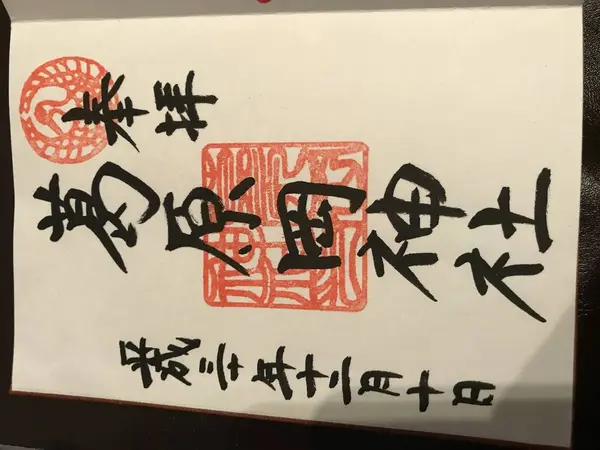 奉拝
葛原岡神社
平成三十年十二月十日